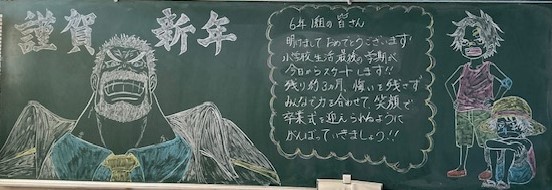 謹賀 新年
6年1組の皆さん
明けましておめでとうございます
小学校生活最後の学期が
今日からスタートします!!
残り約3カ月、悔いを残さず
みんなで力を合わせて笑顔で
卒業式を迎えられるように
がんばっていきましょう!!